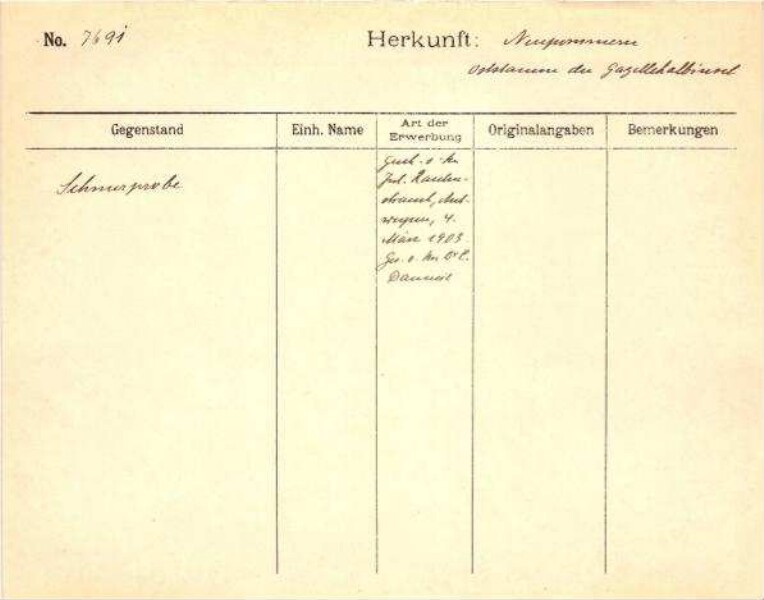 No. 7691
Herkunft: Neupommern
Oststamm der Gazellehalbinsel
Gegenstand
Einh. Name
Art der
Erwerbung
Originalangaben
Bemerkungen
Schnurprobe
Gesch. v. Hn
Jos. Rauten-
strauch, Ant-
werpen, 4.
März 1903.
Ges. v. Hn Dr C.
Danneil